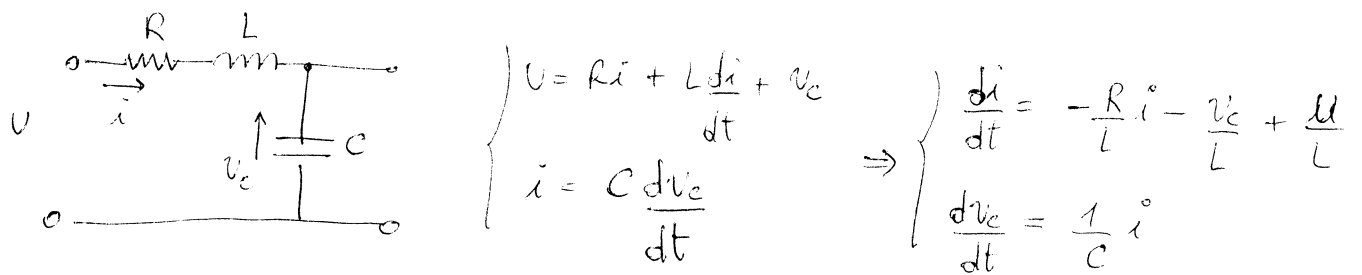 R L
U i
v_c C
U = Ri + L di/dt + v_c
i = C dv_c/dt
⇒
di/dt = -R/L i - v_c/L + U/L
dv_c/dt = 1/C i